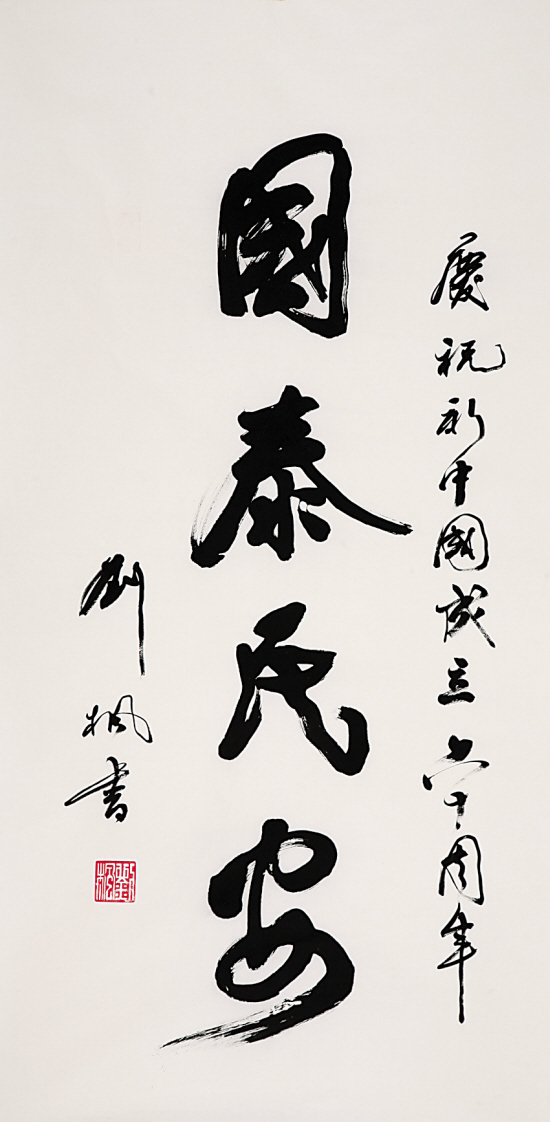 慶祝新中國成立六十周年
國泰民安
劉楓書
劉楓